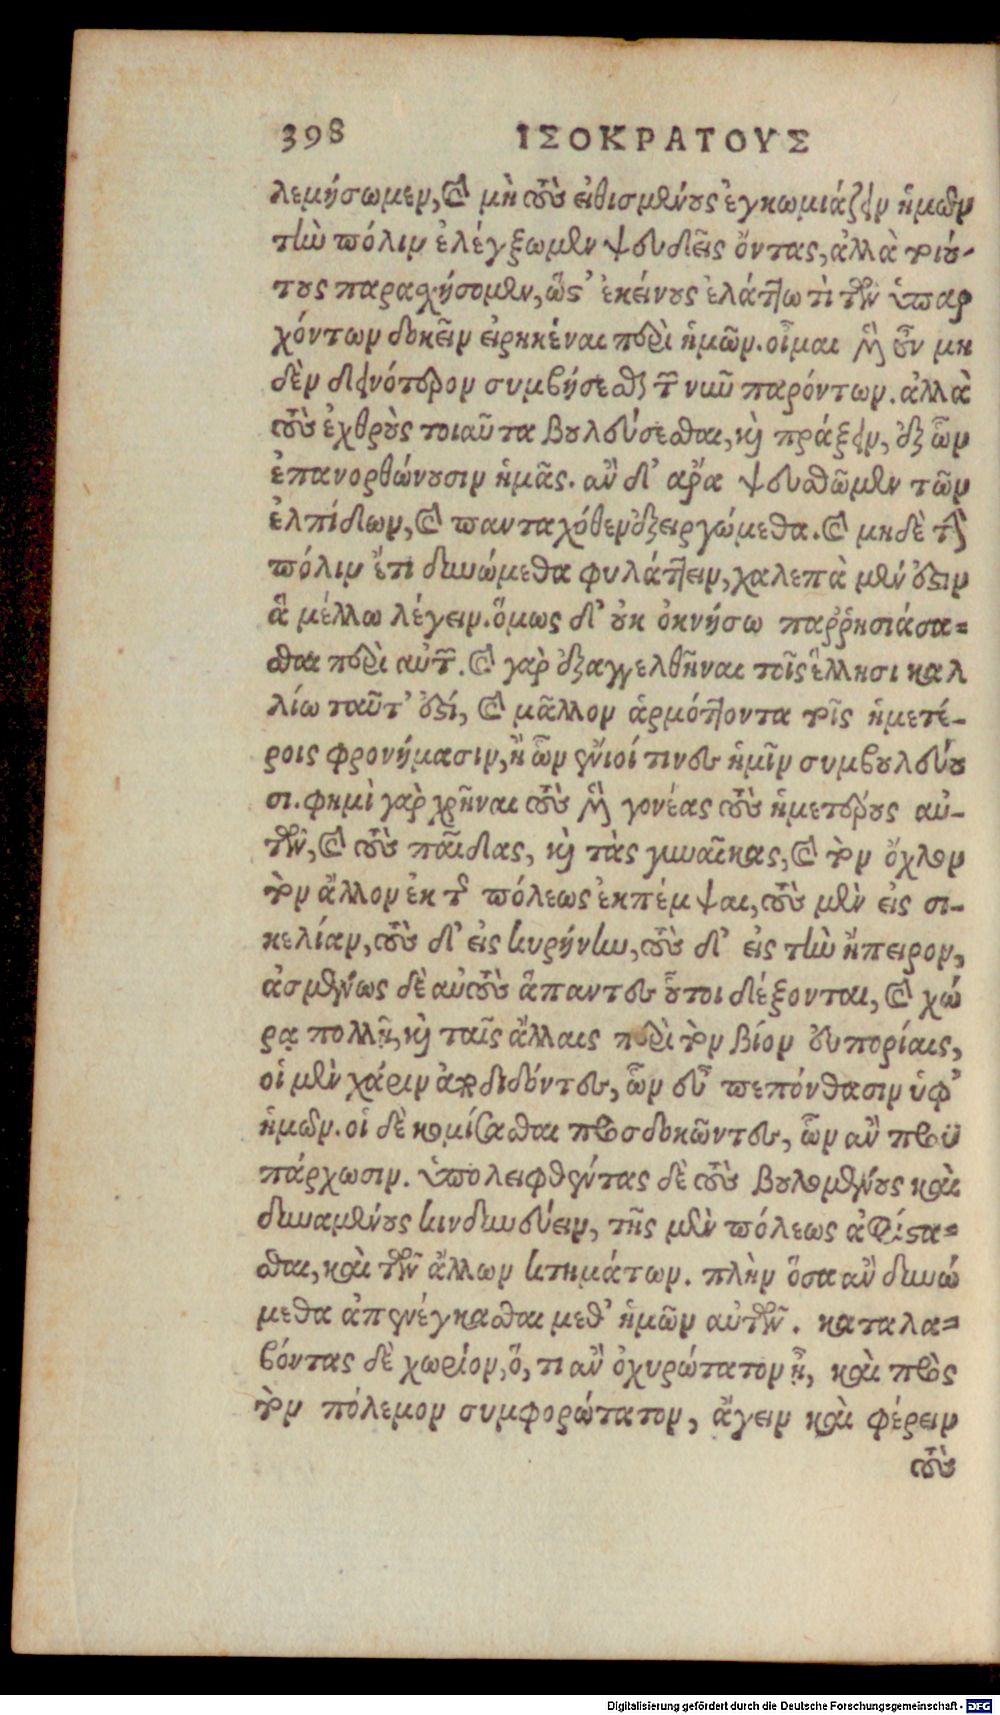 398 ΙΣΟΚΡΑΤΟΥΣ
λεμήσωμεν, καὶ μὴ τοὺς εἰθισμένους ἐγκωμιάζειν ἡμῶν
τὴν πόλιν ἐλέγξωμεν ψευδεῖς ὄντας, ἀλλὰ τοιού-
τους παρασχήσομεν, ὥστ' ἐκείνους ἐλάττω τὶ τῶν ὑπαρ
χόντων δοκεῖν εἰρηκέναι περὶ ἡμῶν. οἶμαι μὲν οὖν μη
δὲν δεινότερον συμβήσεσθαι τῶν νῦν παρόντων. ἀλλὰ
τοὺς ἐχθροὺς τοιαῦτα βουλεύσεσθαι, καὶ πράξειν, ἐξ ὧν
ἐπανορθώνουσιν ἡμᾶς. ἂν δ' ἄρα ψευσθῶμεν τῶν
ἐλπίδων, καὶ πανταχόθεν ἐξειργώμεθα. καὶ μηδὲ τὴν
πόλιν ἔτι δυνώμεθα φυλάττειν, χαλεπὰ μὲν ἐστιν
ἃ μέλλω λέγειν. ὅμως δ' οὐκ ὀκνήσω παῤῥησιάσα=
σθαι περὶ αὐτῶν. καὶ γὰρ ἐξαγγελθῆναι τοῖς ἕλλησι καλ
λίω ταῦτ' ἐστί, καὶ μᾶλλον ἁρμόττοντα τοῖς ἡμετέ-
ροις φρονήμασιν, ἢ ὧν ἔνιοί τινες ἡμῖν συμβουλεύου
σι. φημὶ γὰρ χρῆναι τοὺς μὲν γονέας τοὺς ἡμετέρους αὐ-
τῶν, καὶ τοὺς παῖδας, καὶ τὰς γυναῖκας, καὶ τὸν ὄχλον
τὸν ἄλλον ἐκ τῆς πόλεως ἐκπέμψαι, τοὺς μὲν εἰς σι-
κελίαν, τοὺς δ' εἰς κυρήνην, τοὺς δ' εἰς τὴν ἤπειρον,
ἀσμένως δὲ αὐτοὺς ἅπαντες οὗτοι δέξονται, καὶ χώ
ρᾳ πολλῇ, καὶ ταῖς ἄλλαις περὶ τὸν βίον εὐπορίαις,
οἱ μὲν χάριν ἀποδιδόντες, ὧν εὖ πεπόνθασιν ὑφ'
ἡμῶν. οἱ δὲ κομίσασθαι προσδοκῶντες, ὧν ἂν προϋ
πάρχωσιν. ὑπολειφθέντας δὲ τοὺς βουλομένους καὶ
δυναμένους κινδυνεύειν, τῆς μὲν πόλεως ἀφίστα=
σθαι, καὶ τῶν ἄλλων κτημάτων. πλὴν ὅσα ἂν δυνώ
μεθα ἀπενέγκασθαι μεθ' ἡμῶν αὐτῶν. καταλα=
βόντας δὲ χωρίον, ὅ, τι ἂν ὀχυρώτατον ᾖ, καὶ πρὸς
τὸν πόλεμον συμφορώτατον, ἄγειν καὶ φέρειν
τοὺς
Digitalisierung gefördert durch die Deutsche Forschungsgemeinschaft - DFG